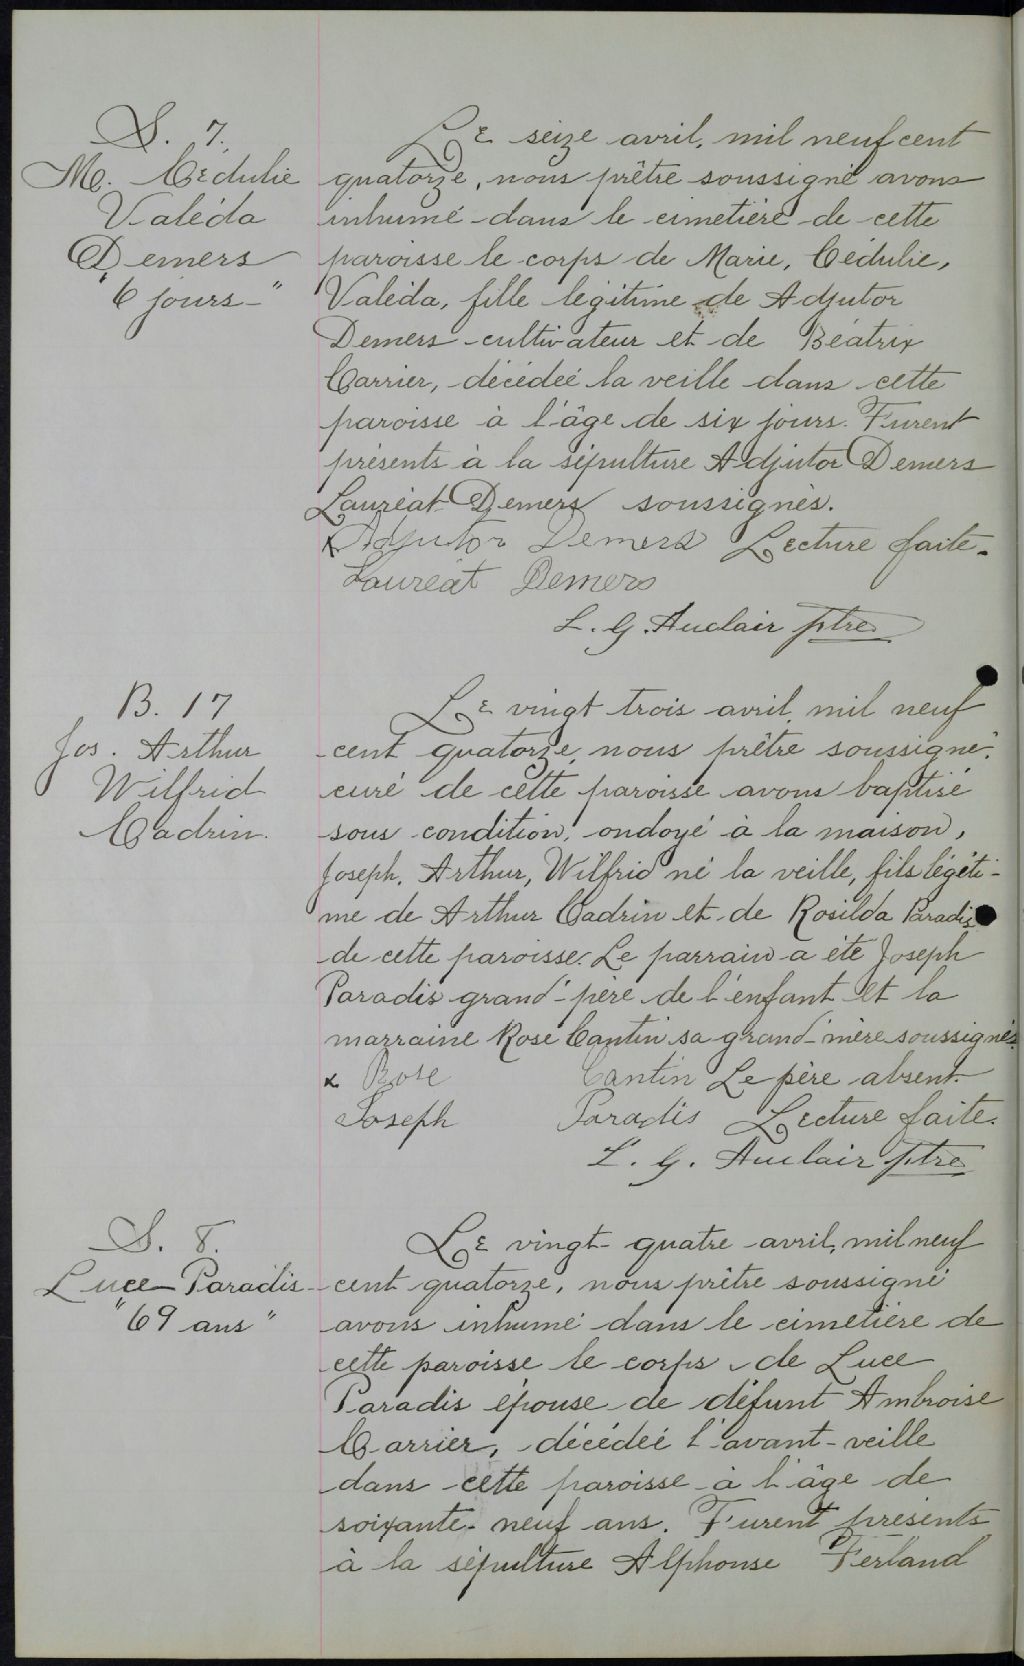 S. 7.
M. Cédulie
Valéda
Demers
"6 jours-"
Le seize avril, mil neuf cent
quatorze, nous prêtre soussigné avons
inhumé dans le cimetière de cette
paroisse le corps de Marie, Cédulie,
Valéda, fille légitime de Adjutor
Demers cultivateur et de Béatrix
Carrier, décédée la veille dans cette
paroisse à l'âge de six jours. Furent
présents à la sépulture Adjutor Demers
Lauréat Demers soussignés.
x Adjutor Demers Lecture faite.
Lauréat Demers
L. G. Auclair ptre
B. 17
Jos. Arthur
Wilfrid
Cadrin.
Le vingt trois avril, mil neuf
cent quatorze, nous prêtre soussigné,
curé de cette paroisse avons baptisé
sous condition, ondoyé à la maison,
Joseph, Arthur, Wilfrid né la veille, fils légiti-
me de Arthur Cadrin et de Rosilda Paradis
de cette paroisse. Le parrain a été Joseph
Paradis grand-père de l'enfant et la
marraine Rose Cantin sa grand-mère soussignés.
x Rose Cantin Le père absent.
Joseph Paradis Lecture faite.
L. G. Auclair ptre
S. 8.
Luce Paradis
"69 ans"
Le vingt-quatre avril, mil neuf
cent quatorze, nous prêtre soussigné
avons inhumé dans le cimetière de
cette paroisse le corps de Luce
Paradis épouse de défunt Ambroise
Carrier, décédée l'avant-veille
dans cette paroisse à l'âge de
soixante-neuf ans. Furent présents
à la sépulture Alphonse Ferland